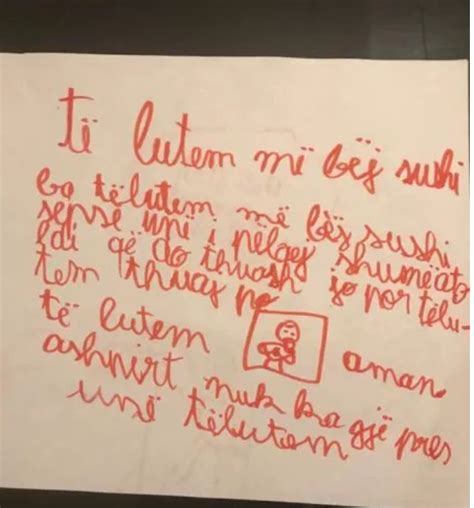 të lutem më bëj sushi
ba tëlutem më bëş sushi
sepse unï i pëlqej shumëato
e di që do thuash jo por tëlu-
tem thuaj po
të lutem aman
ashnirt nuk ka gjë pres
unë tëlutem